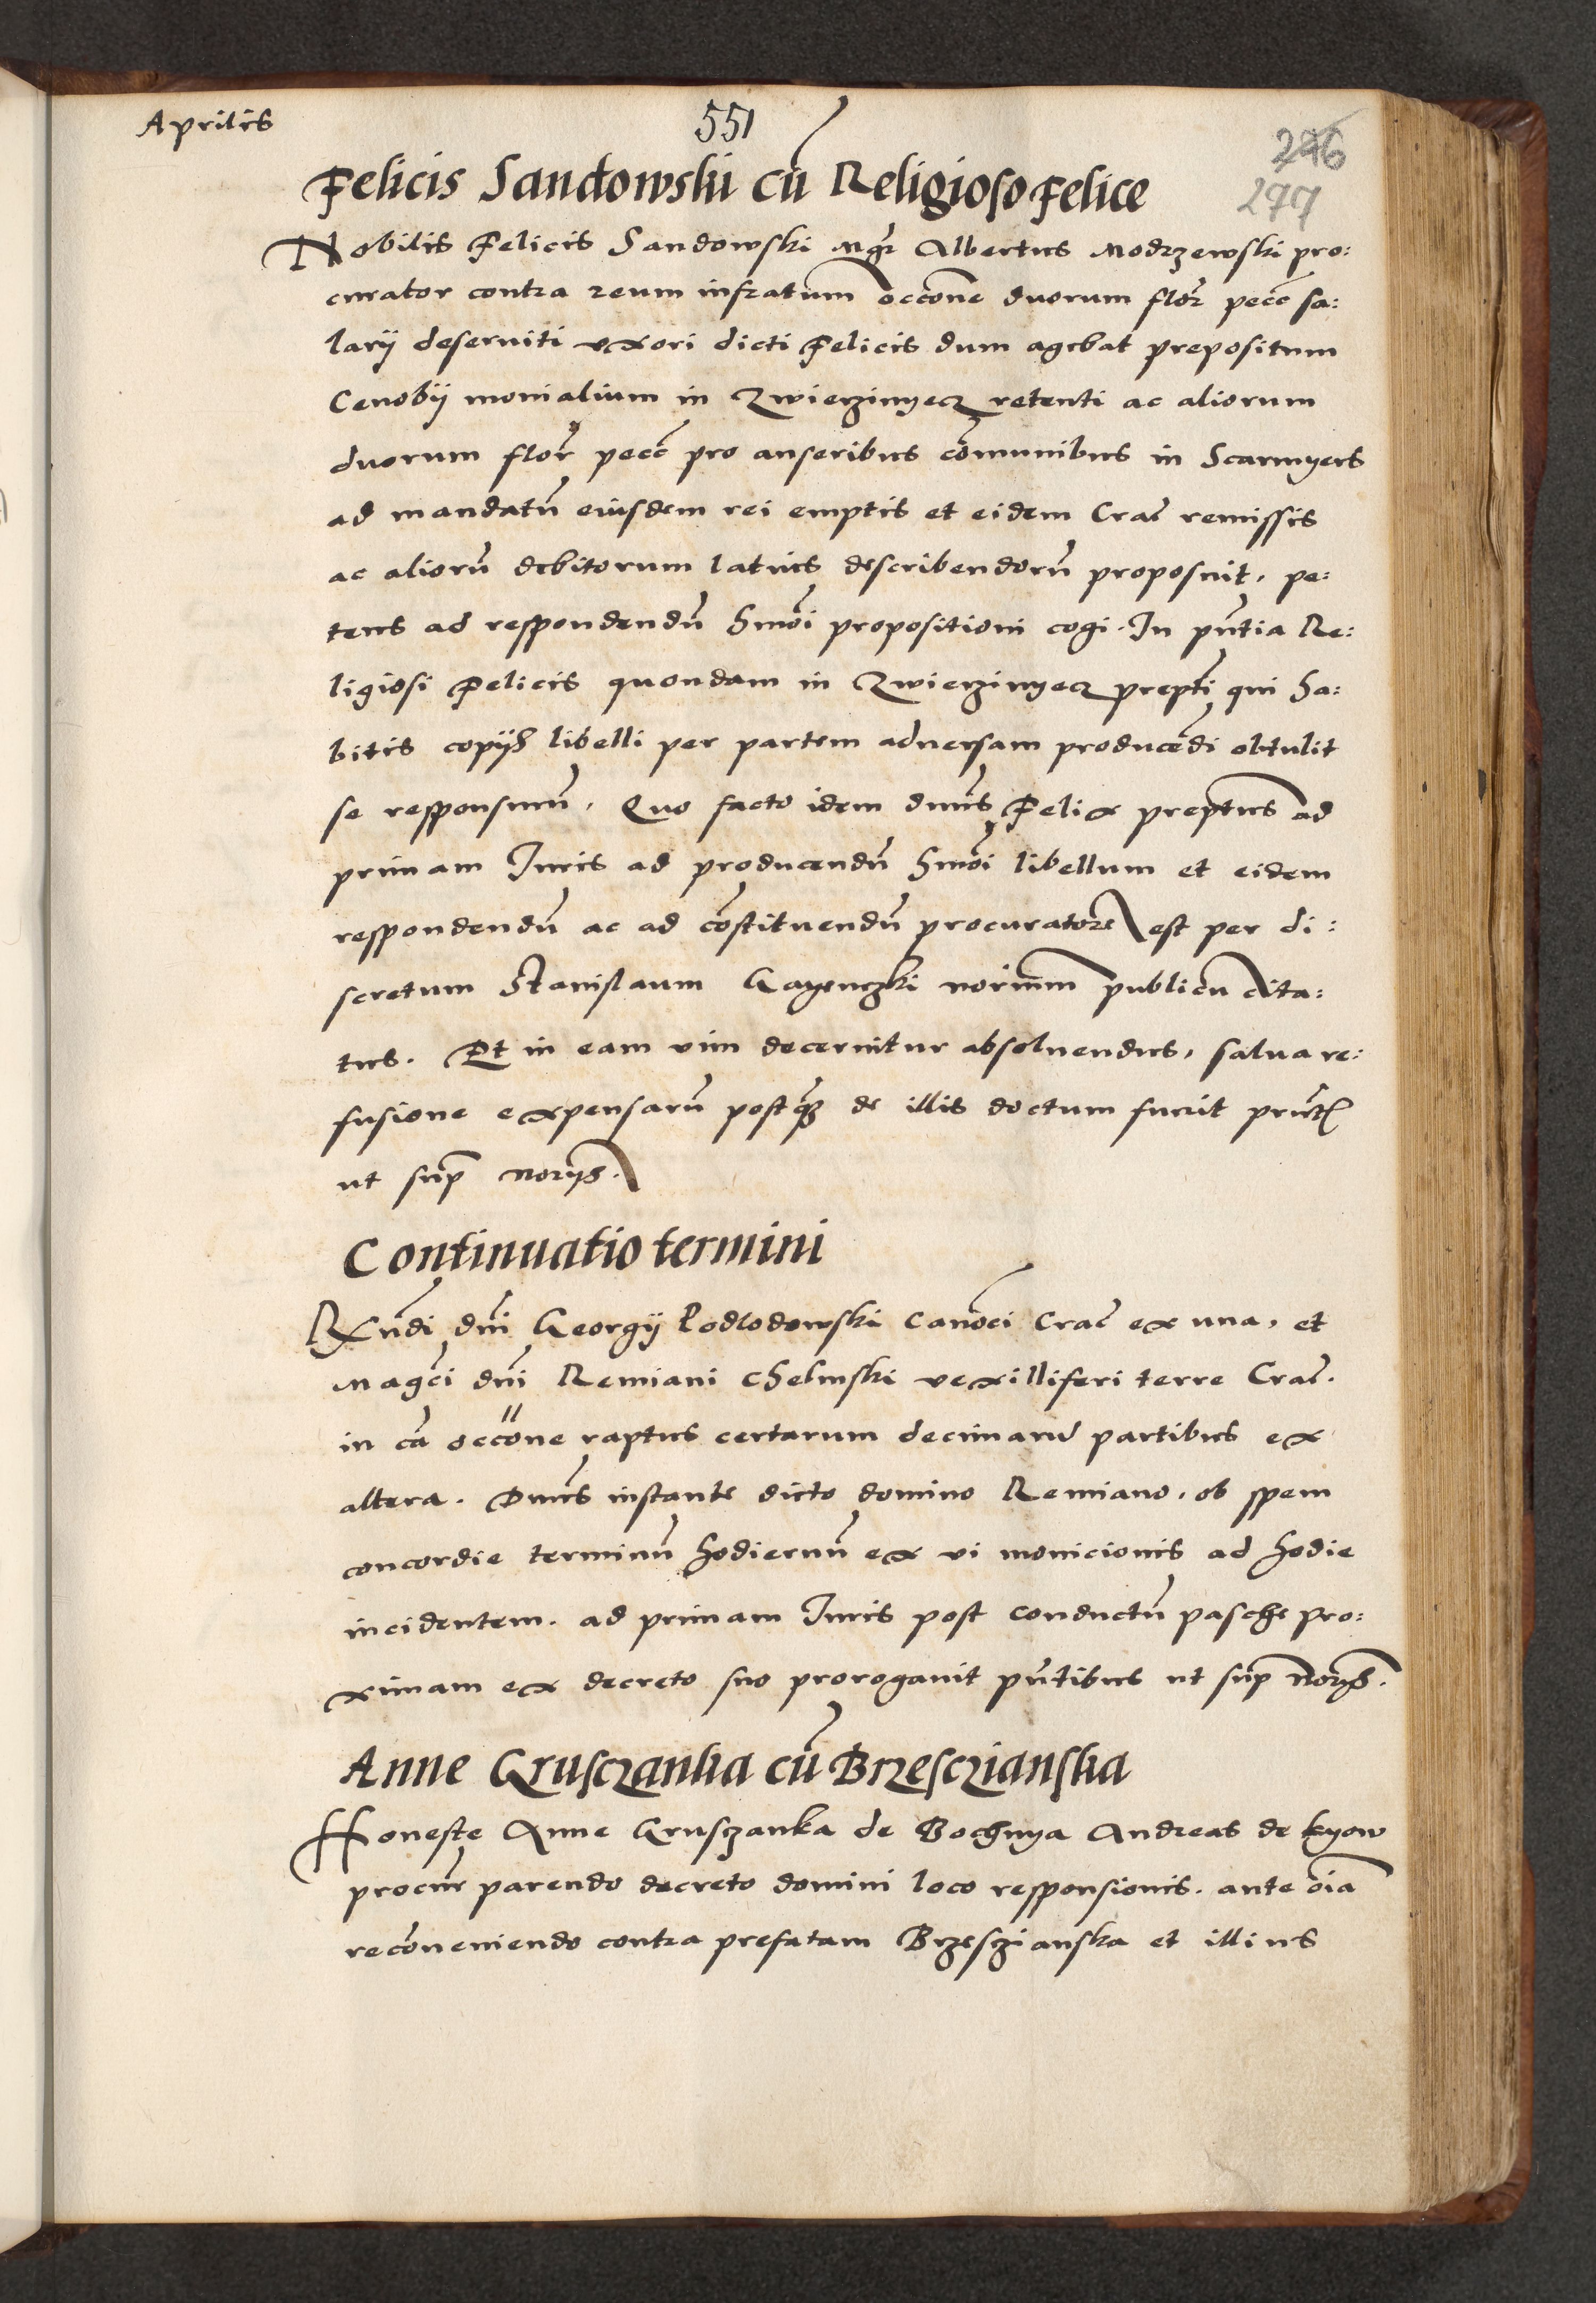 Aprilis
551
296
297
Felicis Sandowski cū Religioso Felice
Nobilis Felicis Sandowski Mgr̄ Albertus Modrzewski pro:
curator contra reum infratum occōne duorum flor̄ pecc̄ sa:
larij deseruiti uxori dicti Felicis dum agebat prepositum
Cenobij monialium in Zwierzinyecz retenti ac aliorum
duorum flor̄ pecc̄ pro anseribus cōmunibus in Scarmyers
ad mandatū eiusdem rei emptis et eidem Crac̄ remissis
ac aliorū debitorum latius describendorū proposuit, pe:
tens ad respondendū hmōi propositioni cogi. In pn̄tia Re:
ligiosi Felicis quondam in Zwierzinyecz prepti qui ha:
bitis copijs libelli per partem aduersam producēdi obtulit
se responsurū, Quo facto idem dn̄us Felix preptus ad
primam Iuris ad producendū hmōi libellum et eidem
respondendū ac ad cōstituendū procuratorē est per di:
scretum Stanislaum Gayenczki norium publicū cita:
tus. Et in eam vim decernitur absoluendus, salua re:
fusione expensarū postq̄ȝ de illis doctum fuerit pn̄tibȝ
ut sup̄ norijs.
Continuatio termini
Rx̄ndi dn̄i Georgij Podlodowski Canōci Crac̄ ex una, et
Magc̄i dn̄i Remiani Chelmski vexilliferi terre Crac̄.
in cā occōne raptus certarum decimarū partibus ex
altera. Dn̄us instante dicto domino Remiano, ob spem
concordie terminū hodiernū ex vi monicionis ad hodie
incidentem. ad primam Iuris post conductū pasche pro:
ximam ex decreto suo prorogauit pn̄tibus ut sup̄ norijs.
Anne Gruscranka cū Brzesczianska
Honeste Anne Gruszanka de Bochnya Andreas de Kyow
procur̄ parendo decreto domini loco responsionis. ante oīa
recōueniendo contra prefatam Brzesczianska et illius